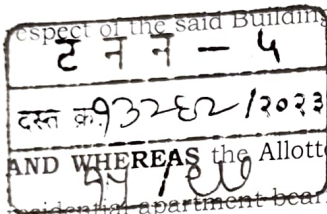 espect of the said Building
ट न न - ५
दस्त क्र. १३२६२/२०२३
AND WHEREAS the Allott
residential apartment bear